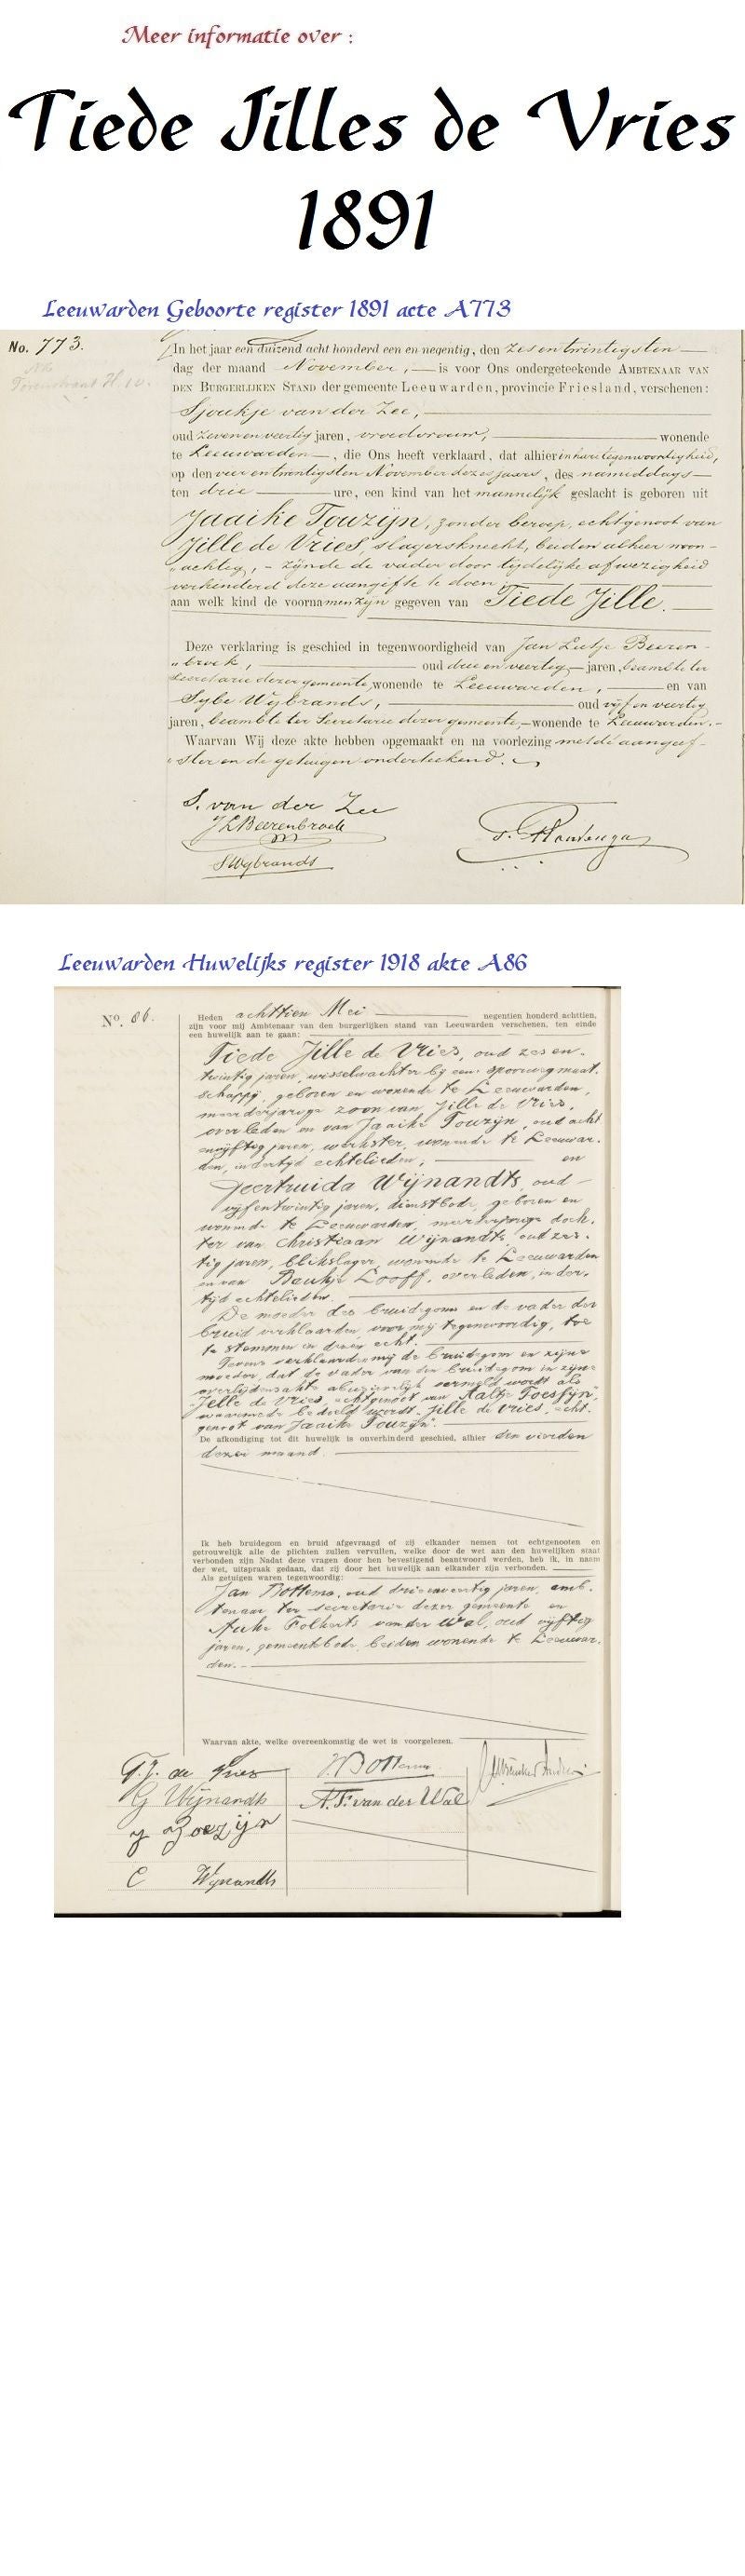 Meer informatie over :
Tiede Jilles de Vries
1891
Leeuwarden Geboorte register 1891 acte A773
No. 773.
In het jaar een duizend acht honderd een en negentig, den zesentwintigsten
dag der maand November, is voor Ons ondergeteekende AMBTENAAR VAN
DEN BURGERLIJKEN STAND der gemeente Leeuwarden, provincie Friesland, verschenen:
Sjoukje van der Zee,
oud zevenenveertig jaren, vroedvrouw, wonende
te Leeuwarden, die Ons heeft verklaard, dat alhier in hare tegenwoordigheid,
op den vierentwintigsten November dezes jaars, des namiddags
ten drie ure, een kind van het mannelijk geslacht is geboren uit
Jaaike Touzijn, zonder beroep, echtgenoot van
Jille de Vries, slagersknecht, beiden alhier woon-
achtig, - zijnde de vader door tijdelijke afwezigheid
verhinderd deze aangifte te doen
aan welk kind de voornamen zijn gegeven van Tiede Jille.
Deze verklaring is geschied in tegenwoordigheid van Jan Lutje Beeren-
broek, oud drie en veertig jaren, beambte ter
Secretarie dezer gemeente, wonende te Leeuwarden, en van
Sybe Wybrands, oud vijf en veertig
jaren, beambte ter Secretarie dezer gemeente, wonende te Leeuwarden.
Waarvan Wij deze akte hebben opgemaakt en na voorlezing met de aangeef-
ster en de getuigen onderteekend.
S. van der Zee
JLBeerenbroek
SWybrands
Leeuwarden Huwelijks register 1918 akte A86
No. 86.
Heden achttien Mei negentien honderd achttien,
zijn voor mij Ambtenaar van den burgerlijken stand van Leeuwarden verschenen, ten einde
een huwelijk aan te gaan:
Tiede Jille de Vries, oud zes en
twintig jaren, wisselwachter bij een spoorwegmaat-
schappij, geboren en wonende te Leeuwarden,
meerderjarige zoon van Jille de Vries,
overleden en van Jaaike Touzijn, oud acht
envijftig jaren, werkster, wonende te Leeuwar-
den, in dertijd echtelieden, en
Geertruida Wijnandts, oud
vijfentwintig jaren, dienstbode, geboren en
wonende te Leeuwarden, meerderjarige doch-
ter van Christiaan Wijnandts, oud zes-
tig jaren, blikslager, wonende te Leeuwarden
en van Baukje Looff, overleden, in der-
tijd echtelieden.
De moeder des bruidegoms en de vader der
bruid verklaarden, voor mij tegenwoordig, toe
te stemmen in dezen echt.
Tevens verklaarden mij de bruidegom en zijne
moeder, dat de vader van den bruidegom in zijne
overlijdensakte abusievelijk vermeld wordt als
"Jelle de Vries, echtgenoot van Aaltje Toesijn",
waarmede bedoeld wordt "Jille de Vries, echt-
genoot van Jaaike Touzijn".
De afkondiging tot dit huwelijk is onverhinderd geschied, alhier den vierden
dezer maand.
Ik heb bruidegom en bruid afgevraagd of zij elkander nemen tot echtgenooten en
getrouwelijk alle de plichten zullen vervullen, welke door de wet aan den huwelijken staat
verbonden zijn Nadat deze vragen door hen bevestigend beantwoord werden, heb ik, in naam
der wet, uitspraak gedaan, dat zij door het huwelijk aan elkander zijn verbonden.
Als getuigen waren tegenwoordig:
Jan Bottema, oud drieenveertig jaren, amb-
tenaar ter secretarie dezer gemeente en
Auke Folkerts van der Wal, oud vijftig
jaren, gemeentebode, beiden wonende te Leeuwar-
den.
Waarvan akte, welke overeenkomstig de wet is voorgelezen.
T.J. de Vries
J. Bottema
G Wijnandts
A.F. van der Wal
J Toezijn
C Wijnandts